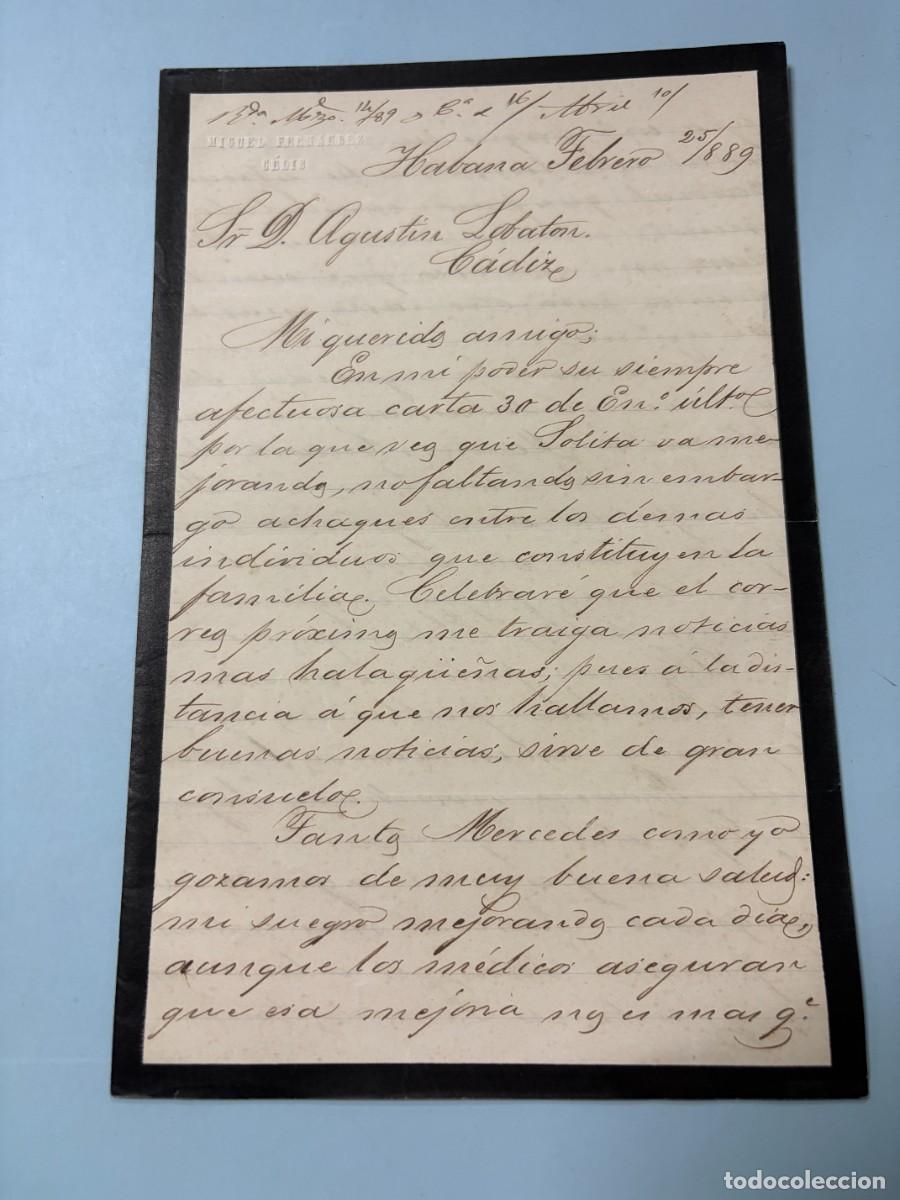 R.da Mzo. 14/89 Abril 10/
MIGUEL FERNÁNDEZ
CÉLIS
Habana Febrero 25/889
Sr D. Agustín Lobatón.
Cádiz
Mi querido amigo;
En mi poder su siempre
afectuosa carta 30 de En.º últº
por la que veo que Lolita va me-
jorando, no faltando sin embar-
go achaques entre los demas
individuos que constituyen la
família. Celebraré que el cor-
reo próximo me traiga noticias
mas halagüeñas; pues á la dis-
tancia á que nos hallamos, tener
buenas noticias, sirve de gran
consuelo.
Tanto Mercedes como yo
gozamos de muy buena salud:
mi suegro mejorando cada día,
aunque los médicos aseguran
que esa mejoria no es mas q.e
todocoleccion